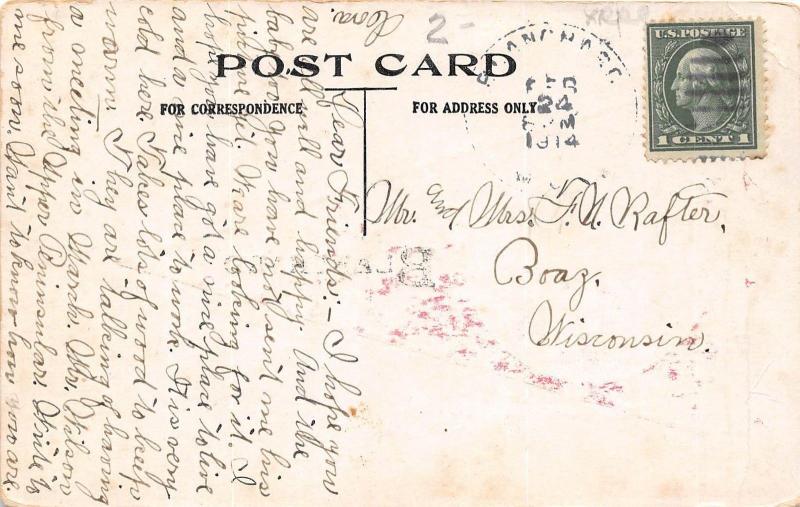 POST CARD
FOR CORRESPONDENCE
FOR ADDRESS ONLY
U.S. POSTAGE
1 CENT 1
2-
24
1914
Mr. and Mrs. F. N. Rafter,
Boaz,
Wisconsin.
Dear Friends:- I hope you
are all well and happy. And the
baby too. You have not sent me his
picture yet. We are looking for it. I
hope you have got a nice place to live
and a nice place to work. It is very
cold here. Takes lots of wood to keep
warm. They are talking of having
a meeting in March. Mr. Wilson
from the Upper Peninsular. Write to
me soon. Want to know how you are.
Cora.